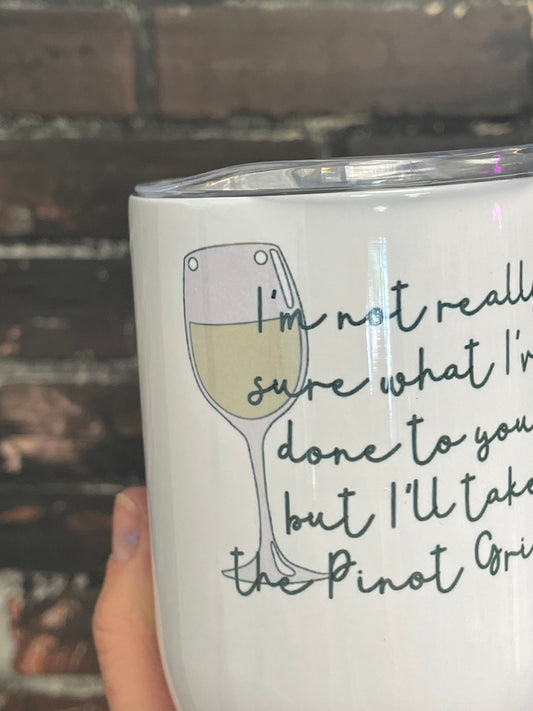 I'm not really
sure what I'v
done to you
but I'll take
the Pinot Gri